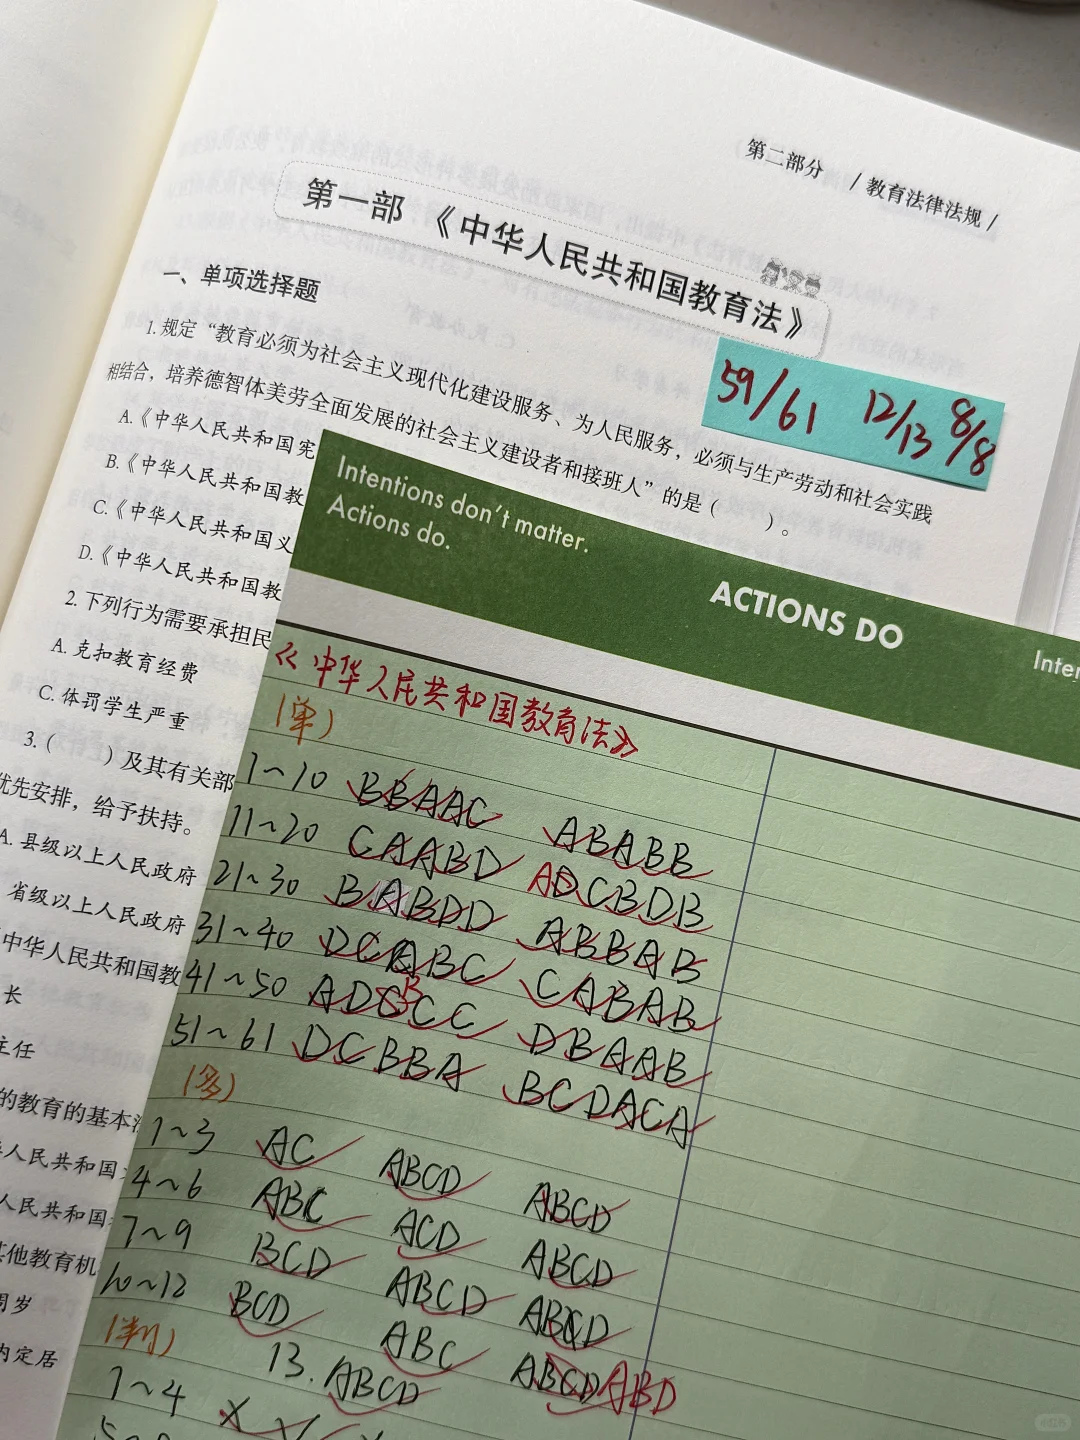 第二部分 / 教育法律法规 /
第一部 《中华人民共和国教育法》
一、单项选择题
1. 规定“教育必须为社会主义现代化建设服务、为人民服务，必须与生产劳动和社会实践
相结合，培养德智体美劳全面发展的社会主义建设者和接班人”的是（ ）。
59/61 12/13 8/8
A.《中华人民共和国宪
B.《中华人民共和国教
C.《中华人民共和国义
D.《中华人民共和国教
2. 下列行为需要承担民
A. 克扣教育经费
C. 体罚学生严重
3.（ ）及其有关部
优先安排，给予扶持。
A. 县级以上人民政府
省级以上人民政府
中华人民共和国教
长
主任
的教育的基本
人民共和国
人民共和国
其他教育机
周岁
内定居
Intentions don't matter.
Actions do.
ACTIONS DO
Inter
《中华人民共和国教育法》
(单)
1~10 BBAAC ABABB
11~20 CAABD ADCBDB
21~30 BABDD ABBAB
31~40 DCABC CABAB
41~50 ADCBCC DBAAB
51~61 DCBBA BCDACA
(多)
1~3 AC ABCD ABCD
4~6 ABC ACD ABCD
7~9 BCD ABCD ABCD
10~12 BCD ABC ABCD ABD
13. ABCD
(判)
1~4 × ✓
小红书